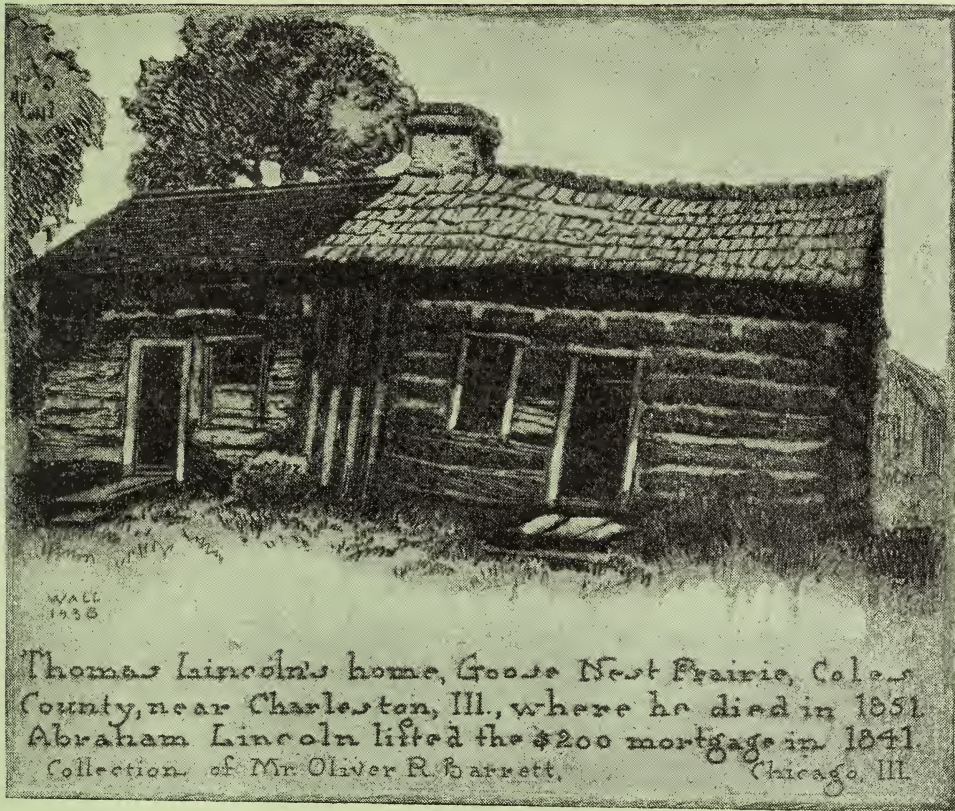 WALL
1938
Thomas Lincoln's home, Goose Nest Prairie, Coles
County, near Charleston, Ill., where he died in 1851
Abraham Lincoln lifted the $200 mortgage in 1841
Collection of Mr. Oliver R. Barrett, Chicago, Ill.